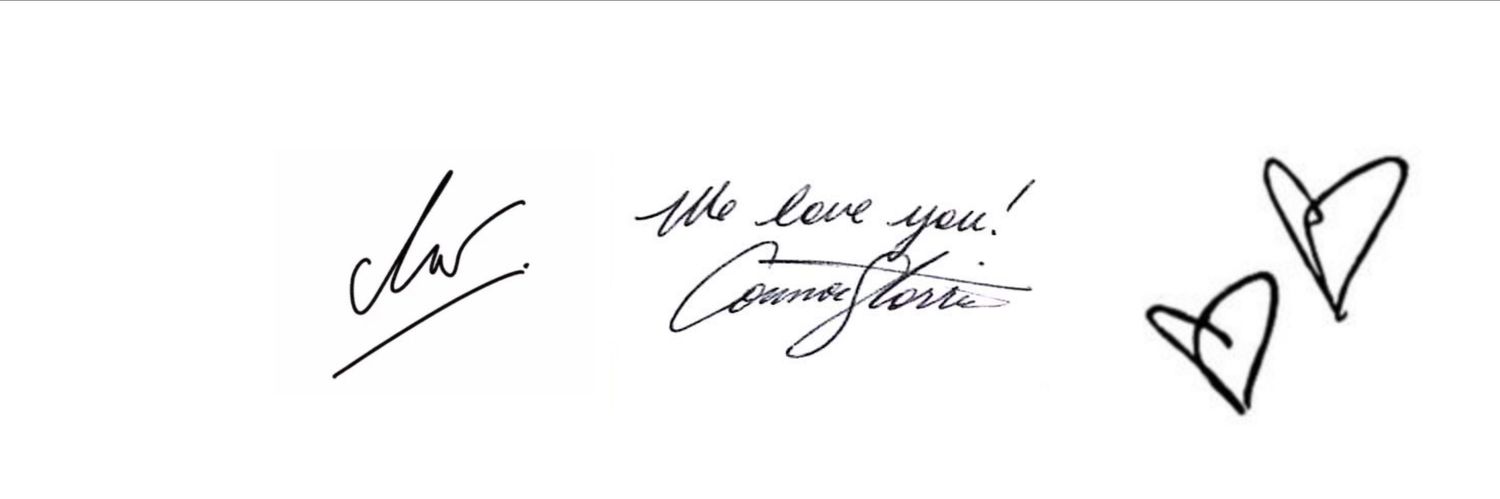 We love you!
Connor Storrie